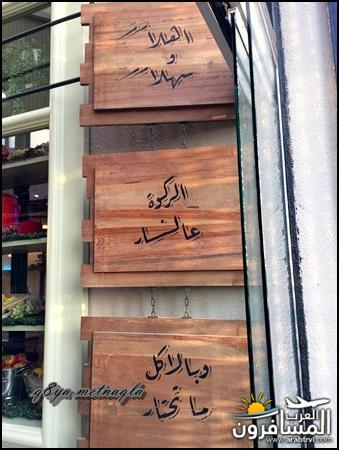 الهلا
و
سهلا
الركوة
عالنار
وبالاكل
ما تحتار
g8ya metnagla
العرب
المسافرون
www.arabtrvl.com